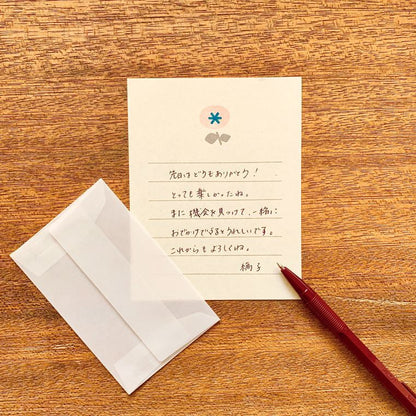 先日はどうもありがとう!
とっても楽しかったね。
また機会を見つけて、一緒に
おでかけできるとうれしいです。
これからもよろしくね。
子